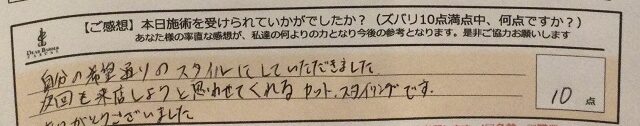 【ご感想】本日施術を受けられていかがでしたか？（ズバリ10点満点中、何点ですか？）
あなた様の率直な感想が、私達の何よりの力となり今後の参考となります。是非ご協力お願いします
自分の希望通りのスタイルにしていただきました
次回も来店しようと思わせてくれるカット、スタイリングです。
ありがとうございました
10点